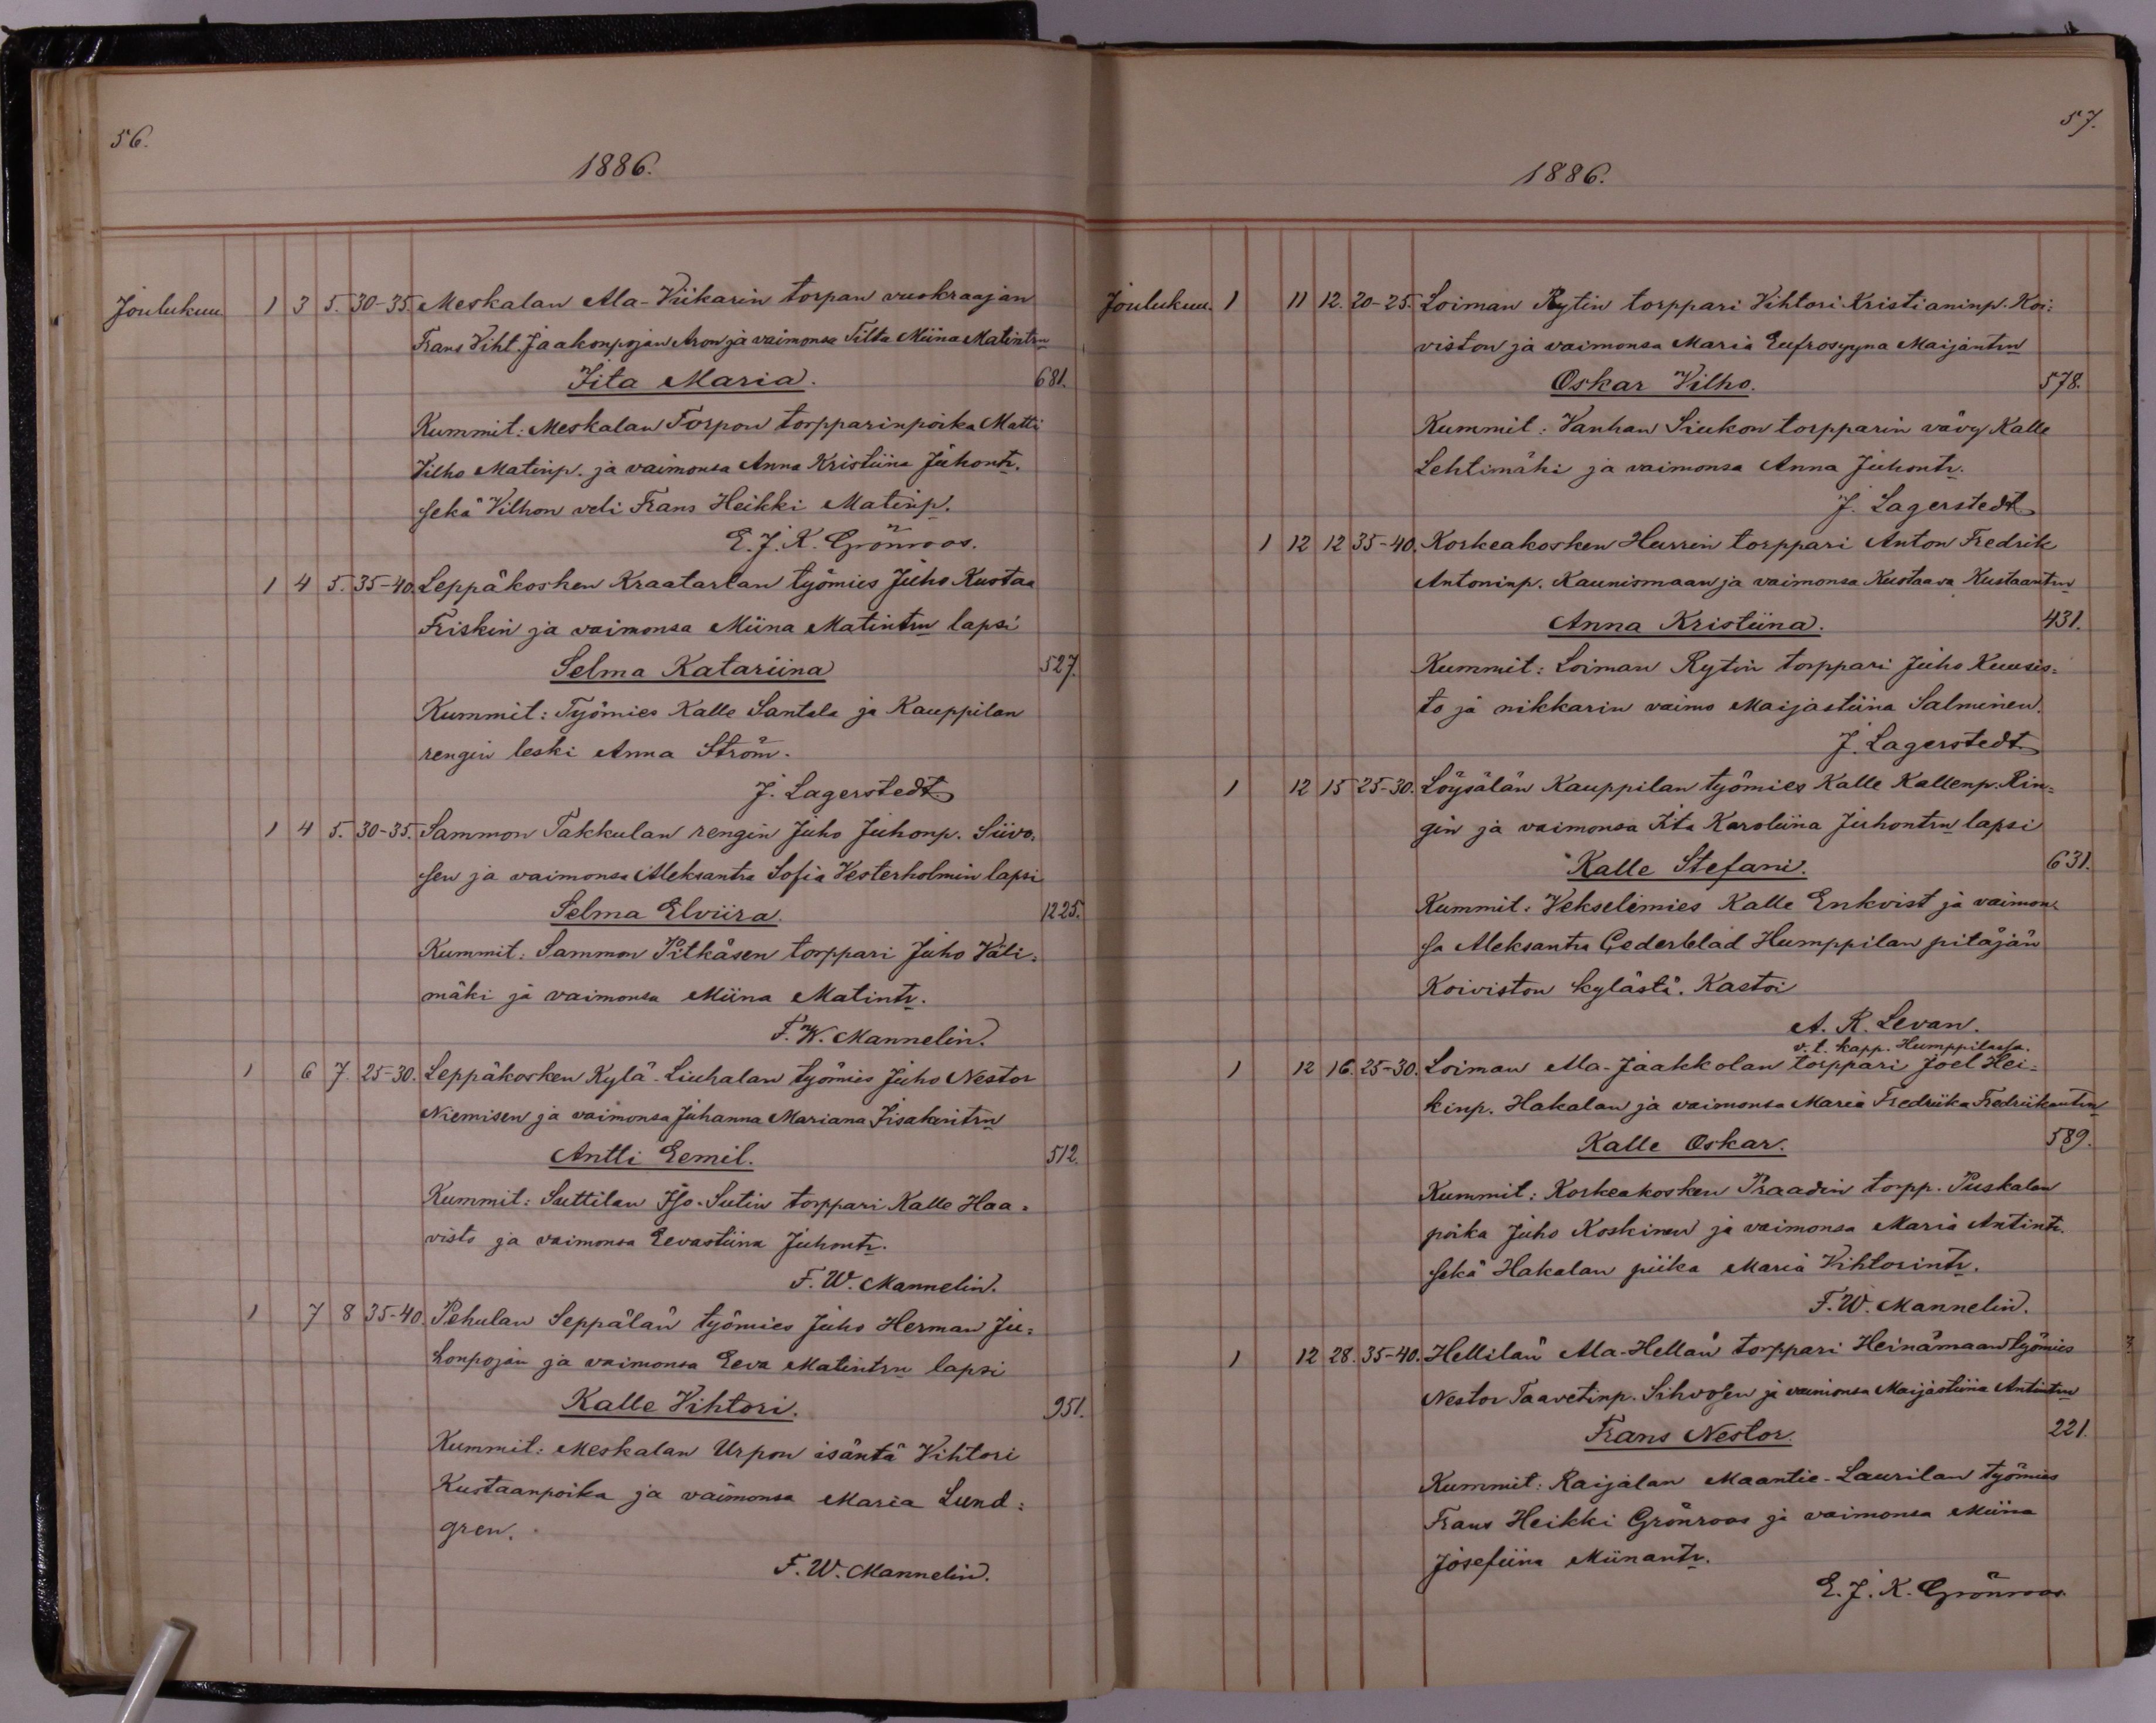 56.
1886.
Joulukuu 1 3 5. 30-35. Meskalan Ala-Viikarin torpan vuokraajan
Frans Viht. Jaakonpojan Aron ja vaimonsa Tilta Miina Matintrn
Iita Maria. 681.
Kummit: Meskalan Torpon torpparinpoika Matti
Vilho Matinp. ja vaimonsa Anna Kristiina Juhontr.
sekä Vilhon veli Frans Heikki Matinp.
E. J. K. Grönroos.
1 4 5. 35-40. Leppäkosken Kraatarlan työmies Juho Kustaa
Friskin ja vaimonsa Miina Matintrn lapsi
Selma Katariina 527.
Kummit: Työmies Kalle Santala ja Kauppilan
rengin leski Anna Ström.
J. Lagerstedt
1 4 5. 30-35. Sammon Takkulan rengin Juho Juhonp. Siivo-
sen ja vaimonsa Aleksantra Sofia Vesterholmin lapsi
Selma Elviira. 1225.
Kummit: Sammon Pitkäsen torppari Juho Väli-
mäki ja vaimonsa Miina Matintr.
F. W. Mannelin.
1 6 7. 25-30. Leppäkosken Kylä-Liuhalan työmies Juho Nestor
Niemisen ja vaimonsa Juhanna Mariana Iisakintrn
Antti Eemil. 512.
Kummit: Suttilan Iso-Sutin torppari Kalle Haa-
visto ja vaimonsa Eevastiina Juhontr.
F. W. Mannelin.
1 7 8 35-40. Pehulan Seppälän työmies Juho Herman Ju-
honpojan ja vaimonsa Eeva Matintrn lapsi
Kalle Vihtori. 951.
Kummit: Meskalan Urpon isäntä Vihtori
Kustaanpoika ja vaimonsa Maria Lund-
gren.
F. W. Mannelin.
57.
1886.
Joulukuu. 1 11 12. 20-25. Loiman Rytin torppari Vihtori Kristianinp. Koi-
viston ja vaimonsa Maria Eufrosyyna Maijantrn
Oskar Vilho. 578.
Kummit: Vanhan Siukon torpparin vävy Kalle
Lehtimäki ja vaimonsa Anna Juhontr.
J. Lagerstedt
1 12 12 35-40. Korkeakosken Hurrin torppari Anton Fredrik
Antoninp. Kaunismaan ja vaimonsa Kustaava Kustaantrn
Anna Kristiina. 431.
Kummit: Loiman Rytin torppari Juho Kuusis-
to ja nikkarin vaimo Maijastiina Salminen.
J. Lagerstedt
1 12 15 25-30. Löysälän Kauppilan työmies Kalle Kallenp. Rin-
gin ja vaimonsa Iita Karoliina Juhontrn lapsi
Kalle Stefani. 631.
Kummit: Vekselimies Kalle Enkvist ja vaimon-
sa Aleksantra Cederblad Humppilan pitäjän
Koiviston kylästä. Kastoi
A. R. Levan.
v. t. kapp. Humppilassa.
1 12 16. 25-30. Loiman Ala-Jaakkolan torppari Joel Hei-
kinp. Hakalan ja vaimonsa Maria Fredriika Fredrikantrn
Kalle Oskar. 589.
Kummit: Korkeakosken Praadin torpp. Puskalan
poika Juho Koskinen ja vaimonsa Maria Antintr.
sekä Hakalan piika Maria Vihtorintr.
F. W. Mannelin.
1 12 28. 35-40. Hellilän Ala-Hellän torppari Heinämaan työmies
Nestor Taavetinp. Sihvosen ja vaimonsa Maijastiina Antintrn
Frans Nestor. 221.
Kummit: Raijalan Maantie-Laurilan työmies
Frans Heikki Grönroos ja vaimonsa Miina
Josefiina Miinantr.
E. J. K. Grönroos.